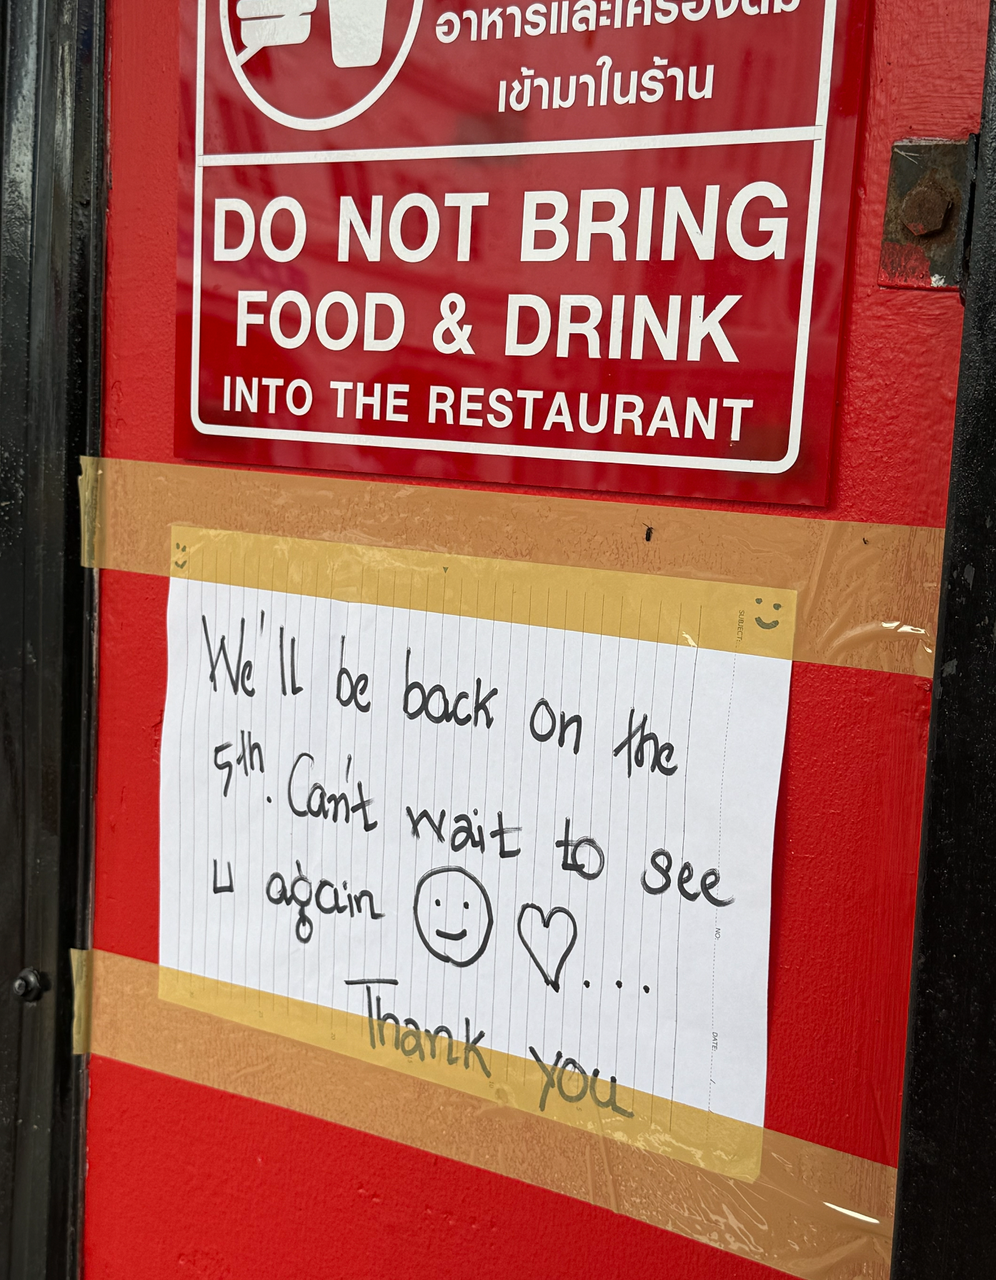 อาหารและเครื่องดื่ม
เข้ามาในร้าน
DO NOT BRING
FOOD & DRINK
INTO THE RESTAURANT
SUBJECT:
We'll be back on the
5th. Can't wait to see
u again ☺ ♡....
NO.
Thank you
DATE: /